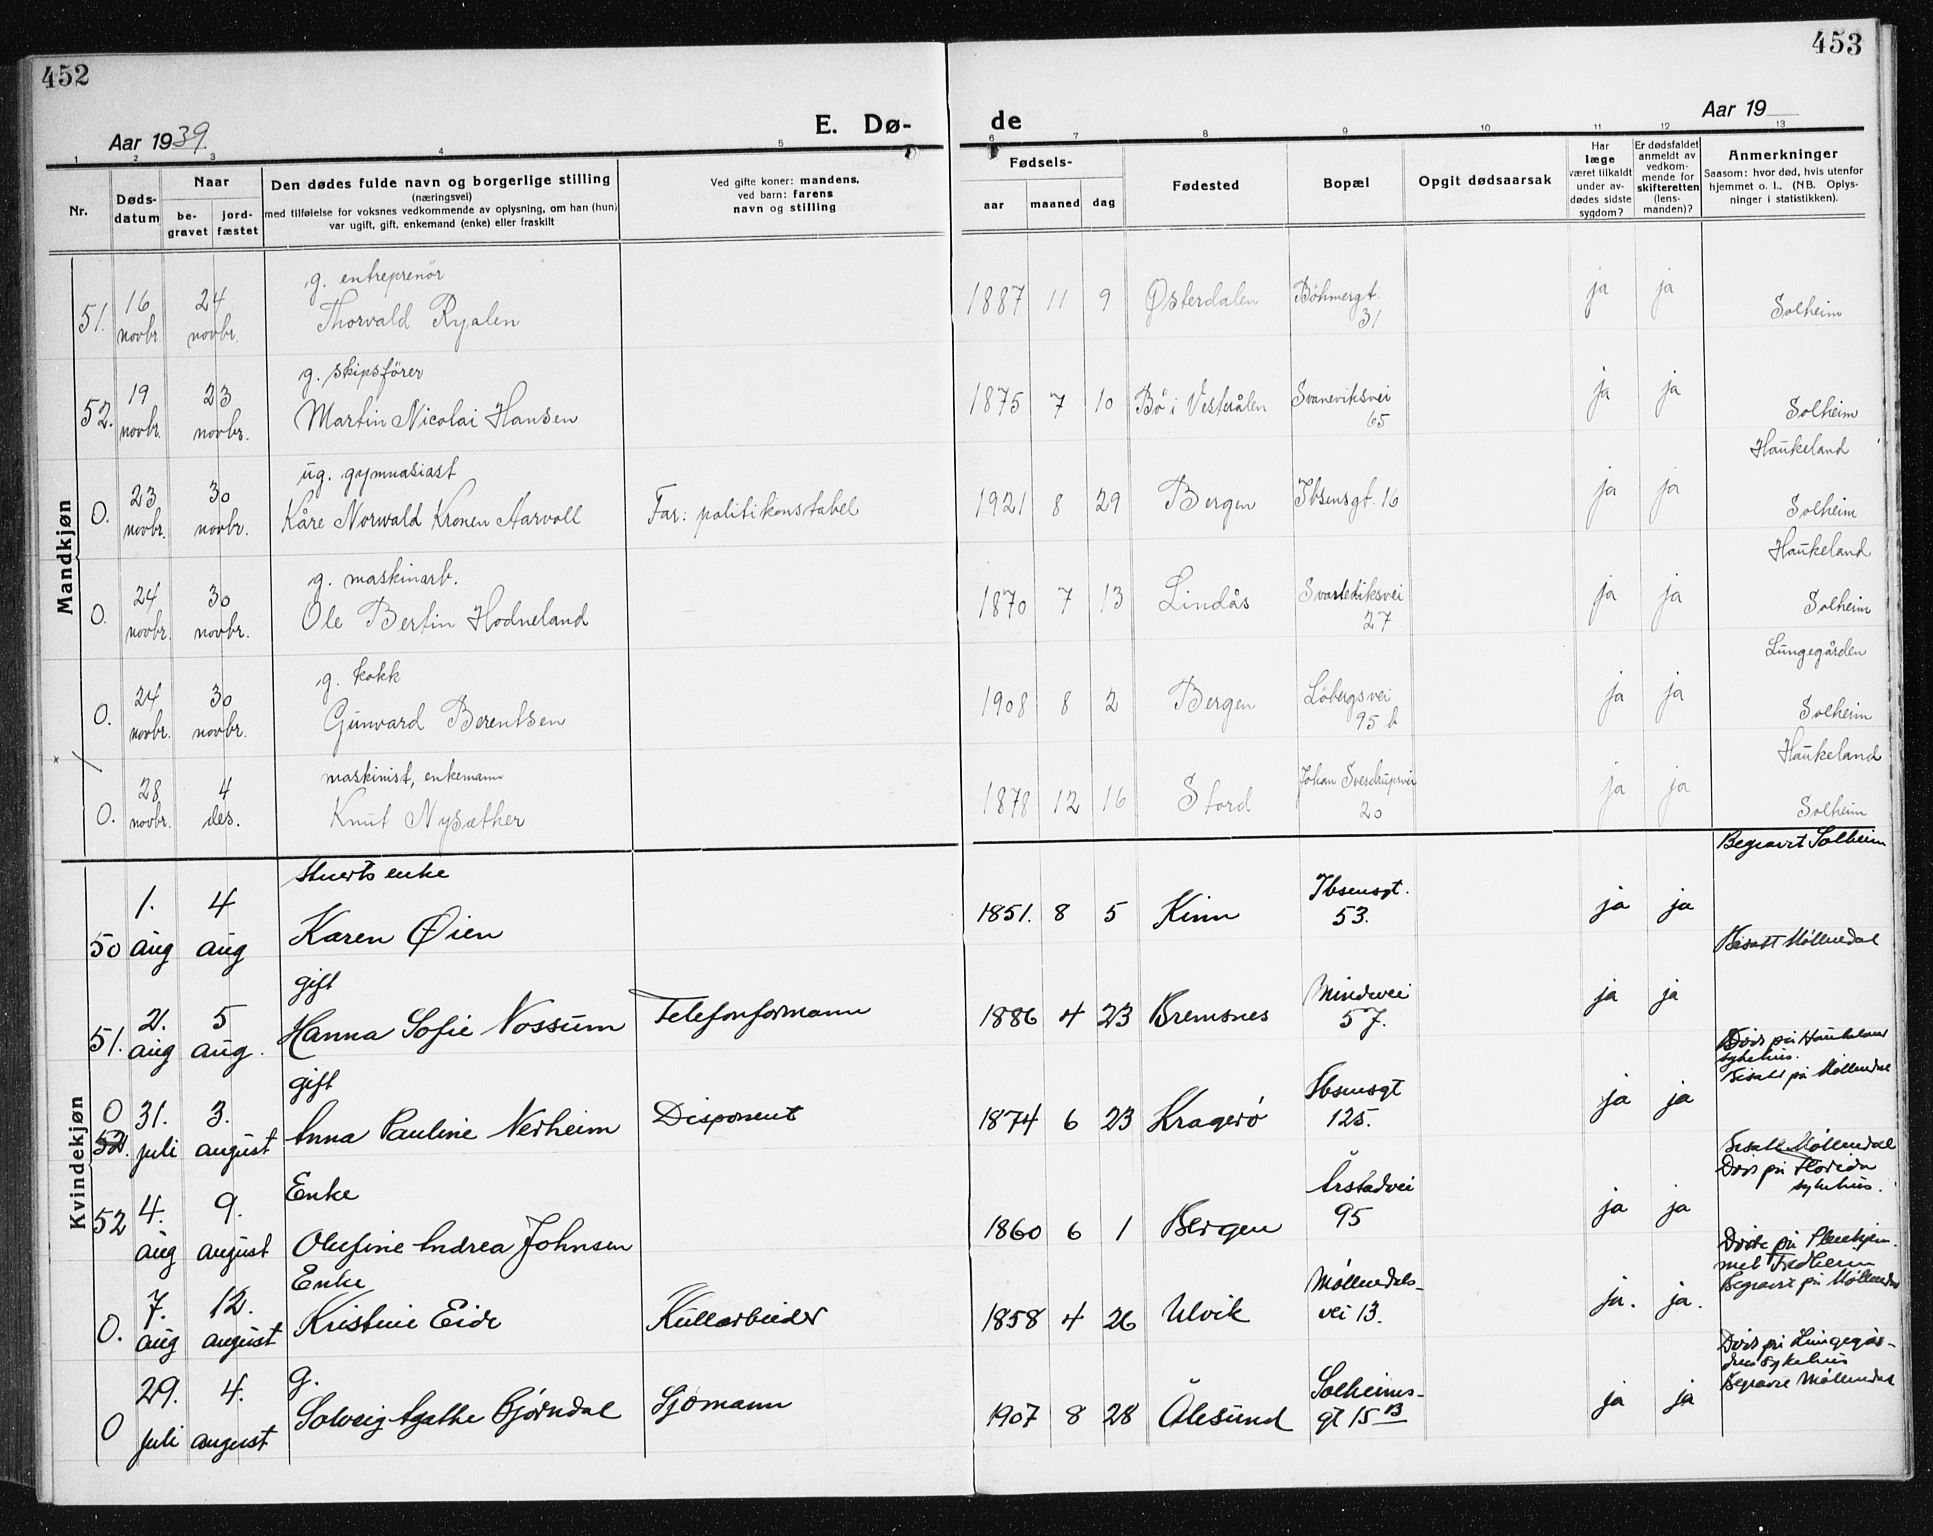 452
453
Aar 1939.
E. Dø-
de
Aar 19
1 2 3 4 5 6 7 8 9 10 11 12 13
Nr.
Døds-
datum
Naar
be-
gravet
jord-
fæstet
Den dødes fulde navn og borgerlige stilling
(næringsvei)
med tilføielse for voksnes vedkommende av oplysning, om han (hun)
var ugift, gift, enkemand (enke) eller fraskilt
Ved gifte koner: mandens,
ved barn: farens
navn og stilling
Fødsels-
aar maaned dag
Fødested
Bopæl
Opgit dødsaarsak
Har
læge
været tilkaldt
under av-
dødes sidste
sygdom?
Er dødsfaldet
anmeldt av
vedkom-
mende for
skifteretten
(lens-
manden)?
Anmerkninger
Saasom: hvor død, hvis utenfor
hjemmet o. l., (NB. Oplys-
ninger i statistikken).
Mandkjøn
g. entreprenör
51. 16 novbr. 24 novbr. Thorvald Ryalen 1887 11 9 Østerdalen Böhmergt. 31 ja ja Solheim
g. skipsförer
52. 19 novbr. 23 novbr. Martin Nicolai Hansen 1875 7 10 Bö i Vesterålen Svaneviksvei 65 ja ja Solheim
Haukeland
ug. gymnasiast
0. 23 novbr. 30 novbr. Kåre Norwald Kronen Aarvoll Far: politikonstabel 1921 8 29 Bergen Ibsensgt. 16 ja ja Solheim
Haukeland
g. maskinarb.
0. 24 novbr. 30 novbr. Ole Bertin Hodneland 1870 7 13 Lindås Svartediksvei 27 ja ja Solheim
Lungegården
g. kokk
0. 24 novbr. 30 novbr. Gunvard Berentsen 1908 8 2 Bergen Löbergsvei 95 b ja ja Solheim
Haukeland
maskinist, enkemann
0. 28 novbr. 4 des. Knut Nysæther 1878 12 16 Stord Johan Sverdrupsvei 20 ja ja Solheim
Kvindekjøn
Begravet Solheim
Stuerts enke
50 1. aug 4 aug Karen Øien 1851. 8 5 Kinn Ibsensgt. 53. ja ja
Bisatt Møllendal
gift
51. 2. aug 5 aug. Hanna Sofie Nossum Telefonformann 1886 4 23 Bremsnes Mindevei 57. ja ja
Døds på Haukeland
sykehus.
Bisatt på Møllendal
gift
0 52. 31. juli 3. august Anna Pauline Nerheim Disponent 1874 6 23 Kragerö Ibsensgt 125. ja ja
Bisatt Møllendal
Døds på Florida
sykehus.
Enke
52 4. aug 9. august Olufine Andrea Johnsen 1860 6 1 Bergen Årstadvei 95 ja ja
Døde på Pleiehjem-
met Fredheim
Begravet på Møllendal
Enke
0. 7. aug 12. august Kristine Eide Kullarbeider 1858 4 26 Ulvik Møllendals- vei 13. ja. ja.
Døds på Lungegår-
dens sykehus
Begravet Møllendal
g.
0 29. juli 4. august Solveig Agathe Gjørndal Sjømann 1907 8 28 Ålesund Solheims- gt 15 B ja ja